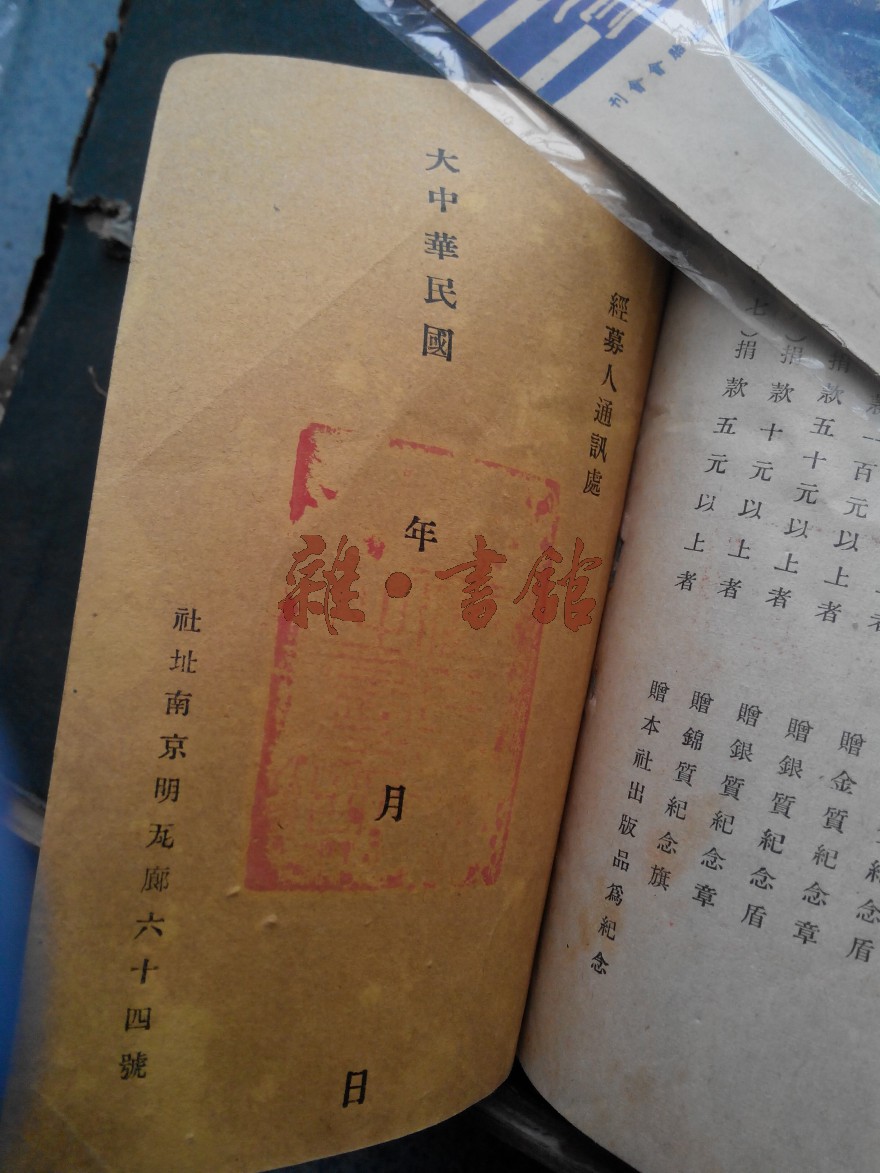 會會刊
一百元以上者
捐款五十元以上者
捐款十元以上者
七）捐款五元以上者
贈金質紀念盾
贈金質紀念章
贈銀質紀念盾
贈銀質紀念章
贈錦質紀念旗
贈本社出版品爲紀念
經募人通訊處
大中華民國
年
月
日
社址南京明瓦廊六十四號
雜·書館